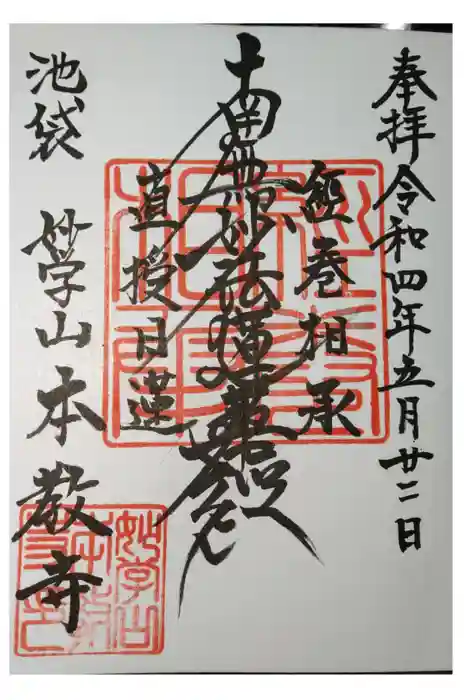 奉拝 令和四年五月廿二日
経巻相承
南無妙法蓮華経
直授日蓮
池袋 妙学山 本教寺
妙学山